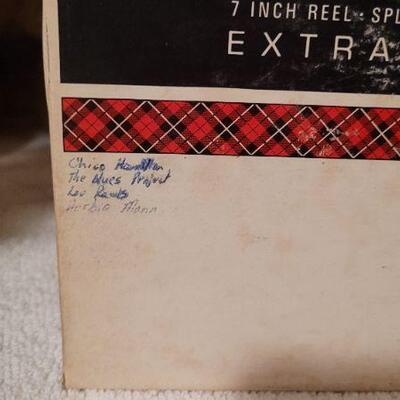 7 INCH REEL · SPL
EXTRA
Chico Hamilton
The blues Project
Lou Rawls
Herbie Mann